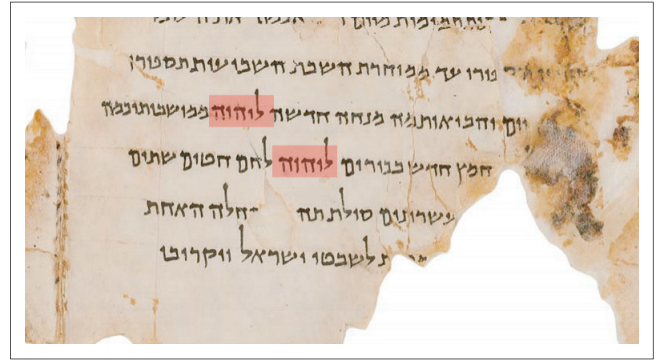 עד ממוחרת השבת השביעית תספורו
יום והביאותמה מנחה חדשה ליהוה ממושבותיכמה
חמץ חדש בכורים ליהוה לחם חטים שתים
עשרונים סולת תה חלה האחת
לשבטי ישראל ויקריבו